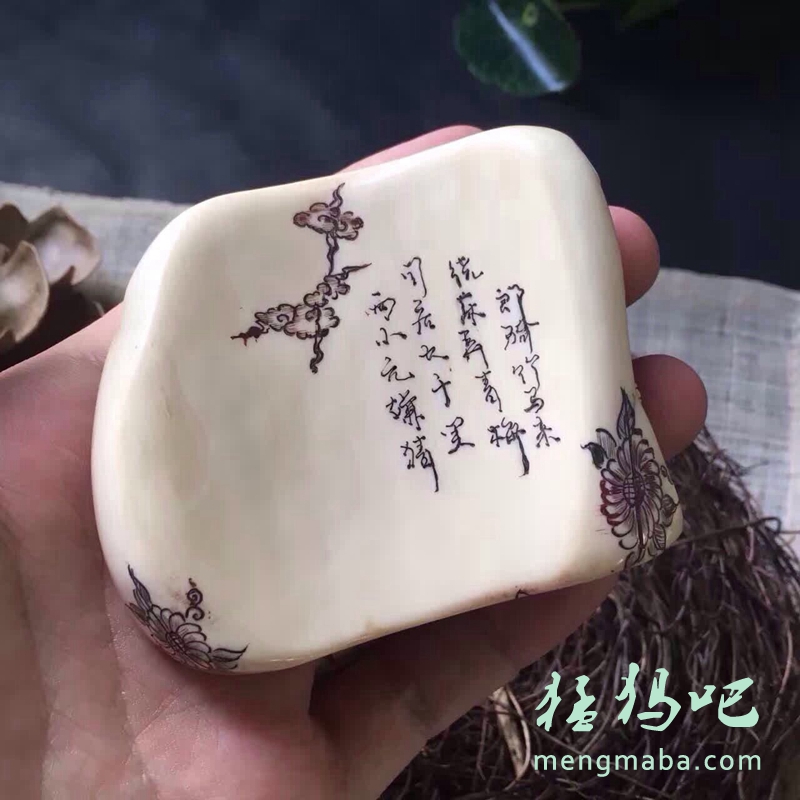 郎骑竹马来
绕床弄青梅
同居长干里
两小无嫌猜
猛犸吧
mengmaba.com